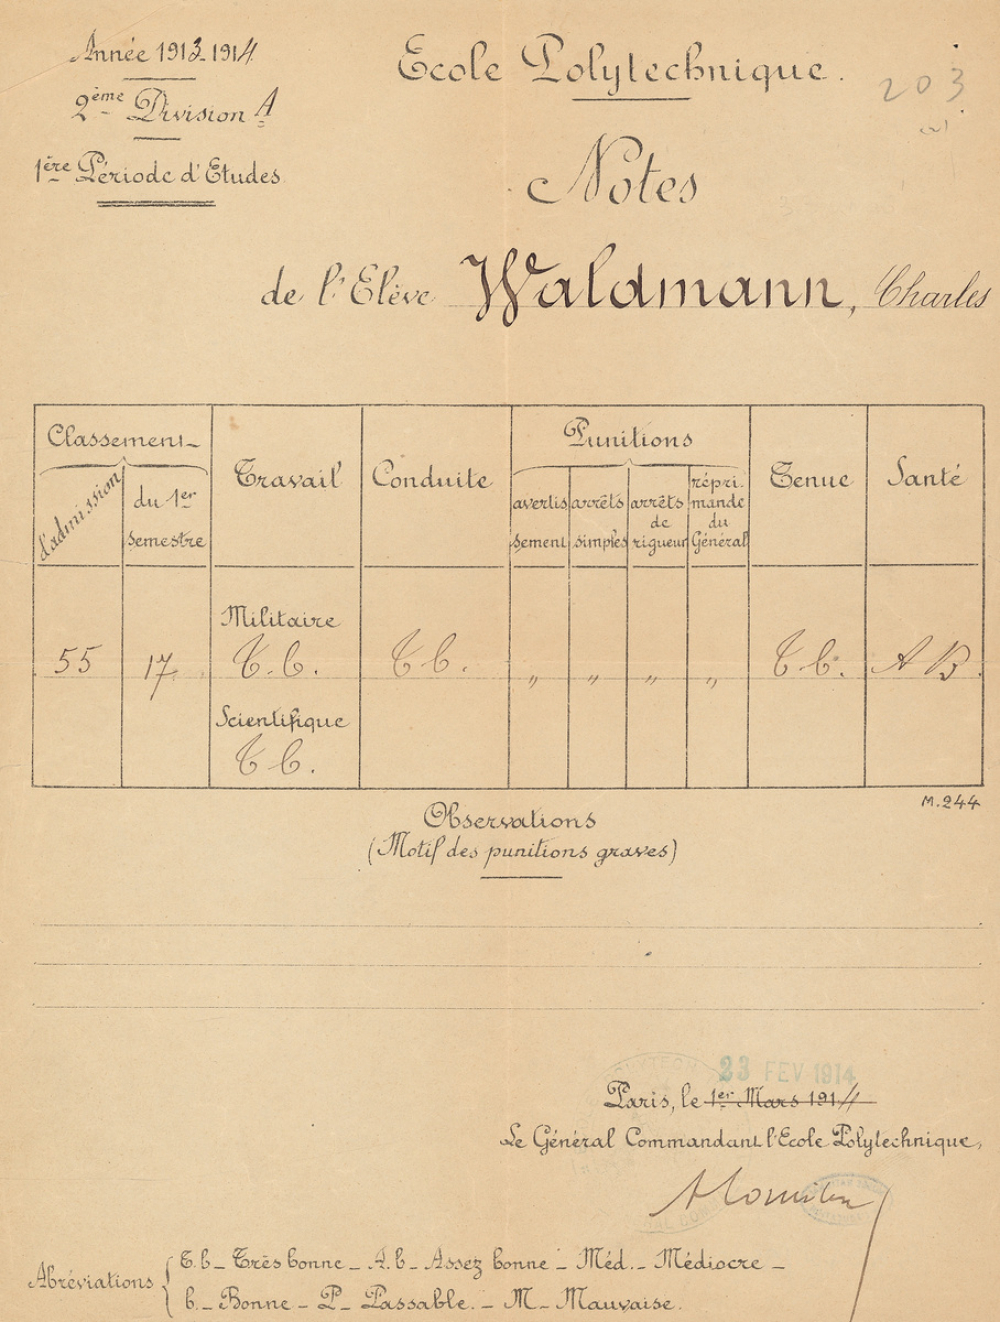 Année 1913-1914
2ème Division A
1ère Période d'Etudes
Ecole Polytechnique.
203
Notes
de l'Elève Waldmann, Charles
Classement
d'admission
du 1er
semestre
Travail
Conduite
Punitions
avertis
sement
arrêts
simples
arrêts
de
rigueur
répri-
mande
du
Général
Tenue
Santé
55
17
Militaire
T.b.
Scientifique
T b.
T b.
"
"
"
"
T b.
A B.
M.244
Observations
(Motif des punitions graves)
23 FEV 1914
Paris, le 1er Mars 1914
Le Général Commandant l'Ecole Polytechnique,
Abréviations
T.b - Très bonne - A.b - Assez bonne - Méd. - Médiocre -
b. - Bonne - P - Passable. - M - Mauvaise.